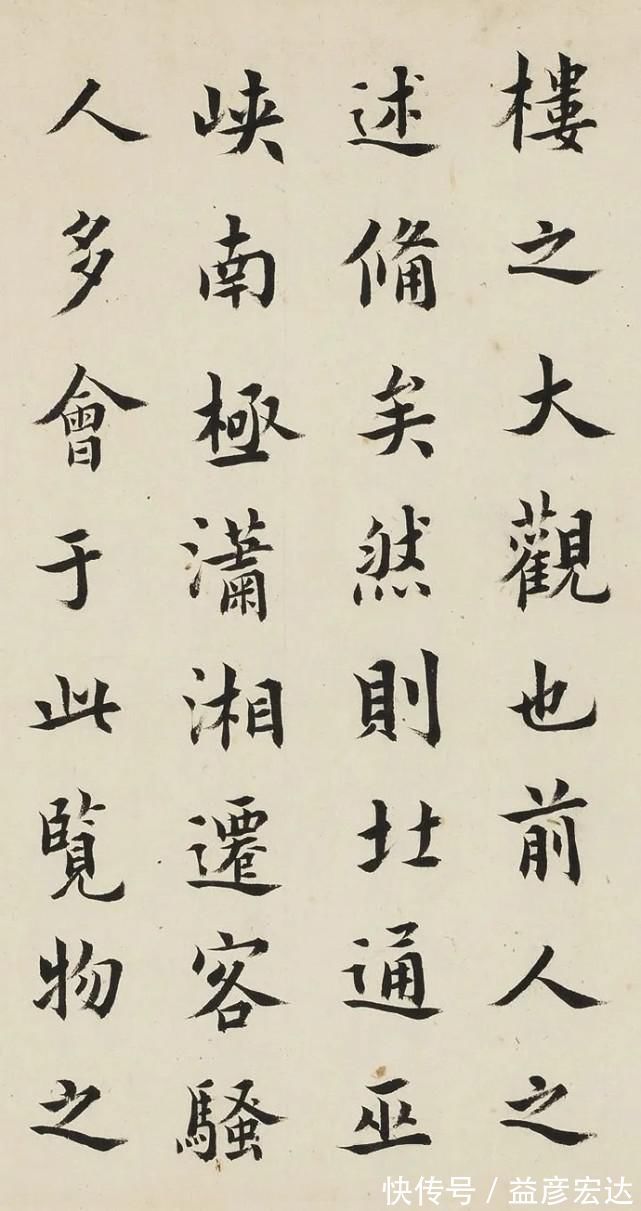 樓之大觀也前人之
述備矣然則北通巫
峽南極瀟湘遷客騷
人多會于此覽物之
快传号/益彦宏达